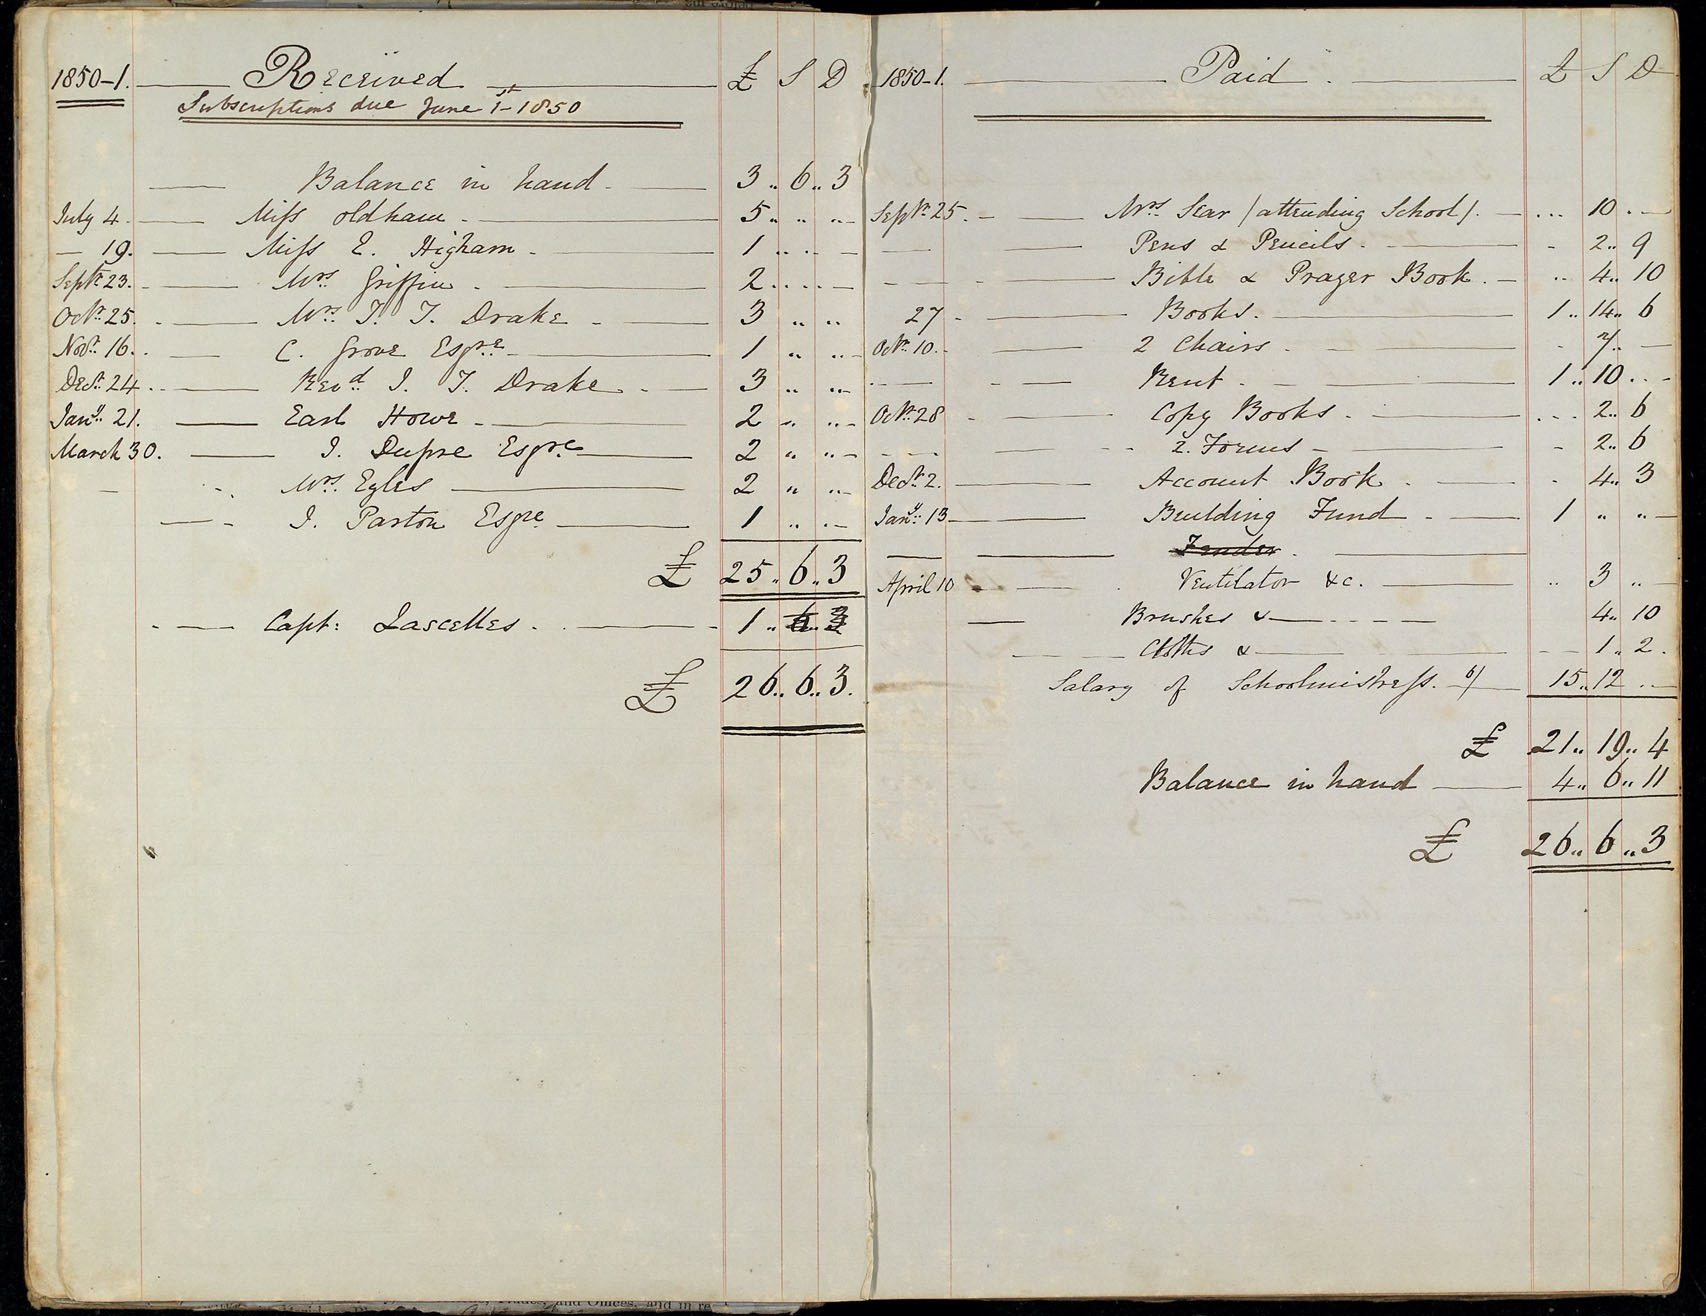 1850-1. Received £ S D
Subscriptions due June 1st 1850
Balance in hand 3 6 3
July 4 Miss Oldham 5 " "
19 Miss E. Higham 1 " "
Septr 23 Mrs Griffin 2 " "
Octr 25 Mrs T. T. Drake 3 " "
Novr 16 C. Grove Esqre 1 " "
Decr 24 Revd J. T. Drake 3 " "
Jany 21 Earl Howe 2 " "
March 30 J. Dupre Esqre 2 " "
Mrs Eyles 2 " "
J. Parton Esqre 1 " "
£ 25 6 3
Capt: Lascelles 1 " 6 3
£ 26 6 3
1850-1. Paid £ S D
Septr 25 Mrs Sear / attending School / 10
Pens & Pencils 2 9
Bible & Prayer Book 4 10
27 Books 1 14 6
Octr 10 2 Chairs 7
Rent 1 10
Octr 28 Copy Books 2 6
2 Forms 2 6
Decr 2 Account Book 4 3
Jany 13 Building Fund 1 " "
Fender
April 10 Ventilator &c. 3 "
Brushes & 4 10
Cloths & 1 2
Salary of Schoolmistress 6/ 15 12
£ 21 19 4
Balance in hand 4 6 11
£ 26 6 3